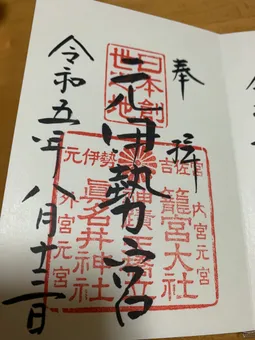 奉拝
元伊勢宮
令和五年八月十三日
日本創
世之地
元伊勢
吉佐宮
内宮元宮
籠宮大社
眞名井神社
外宮元宮